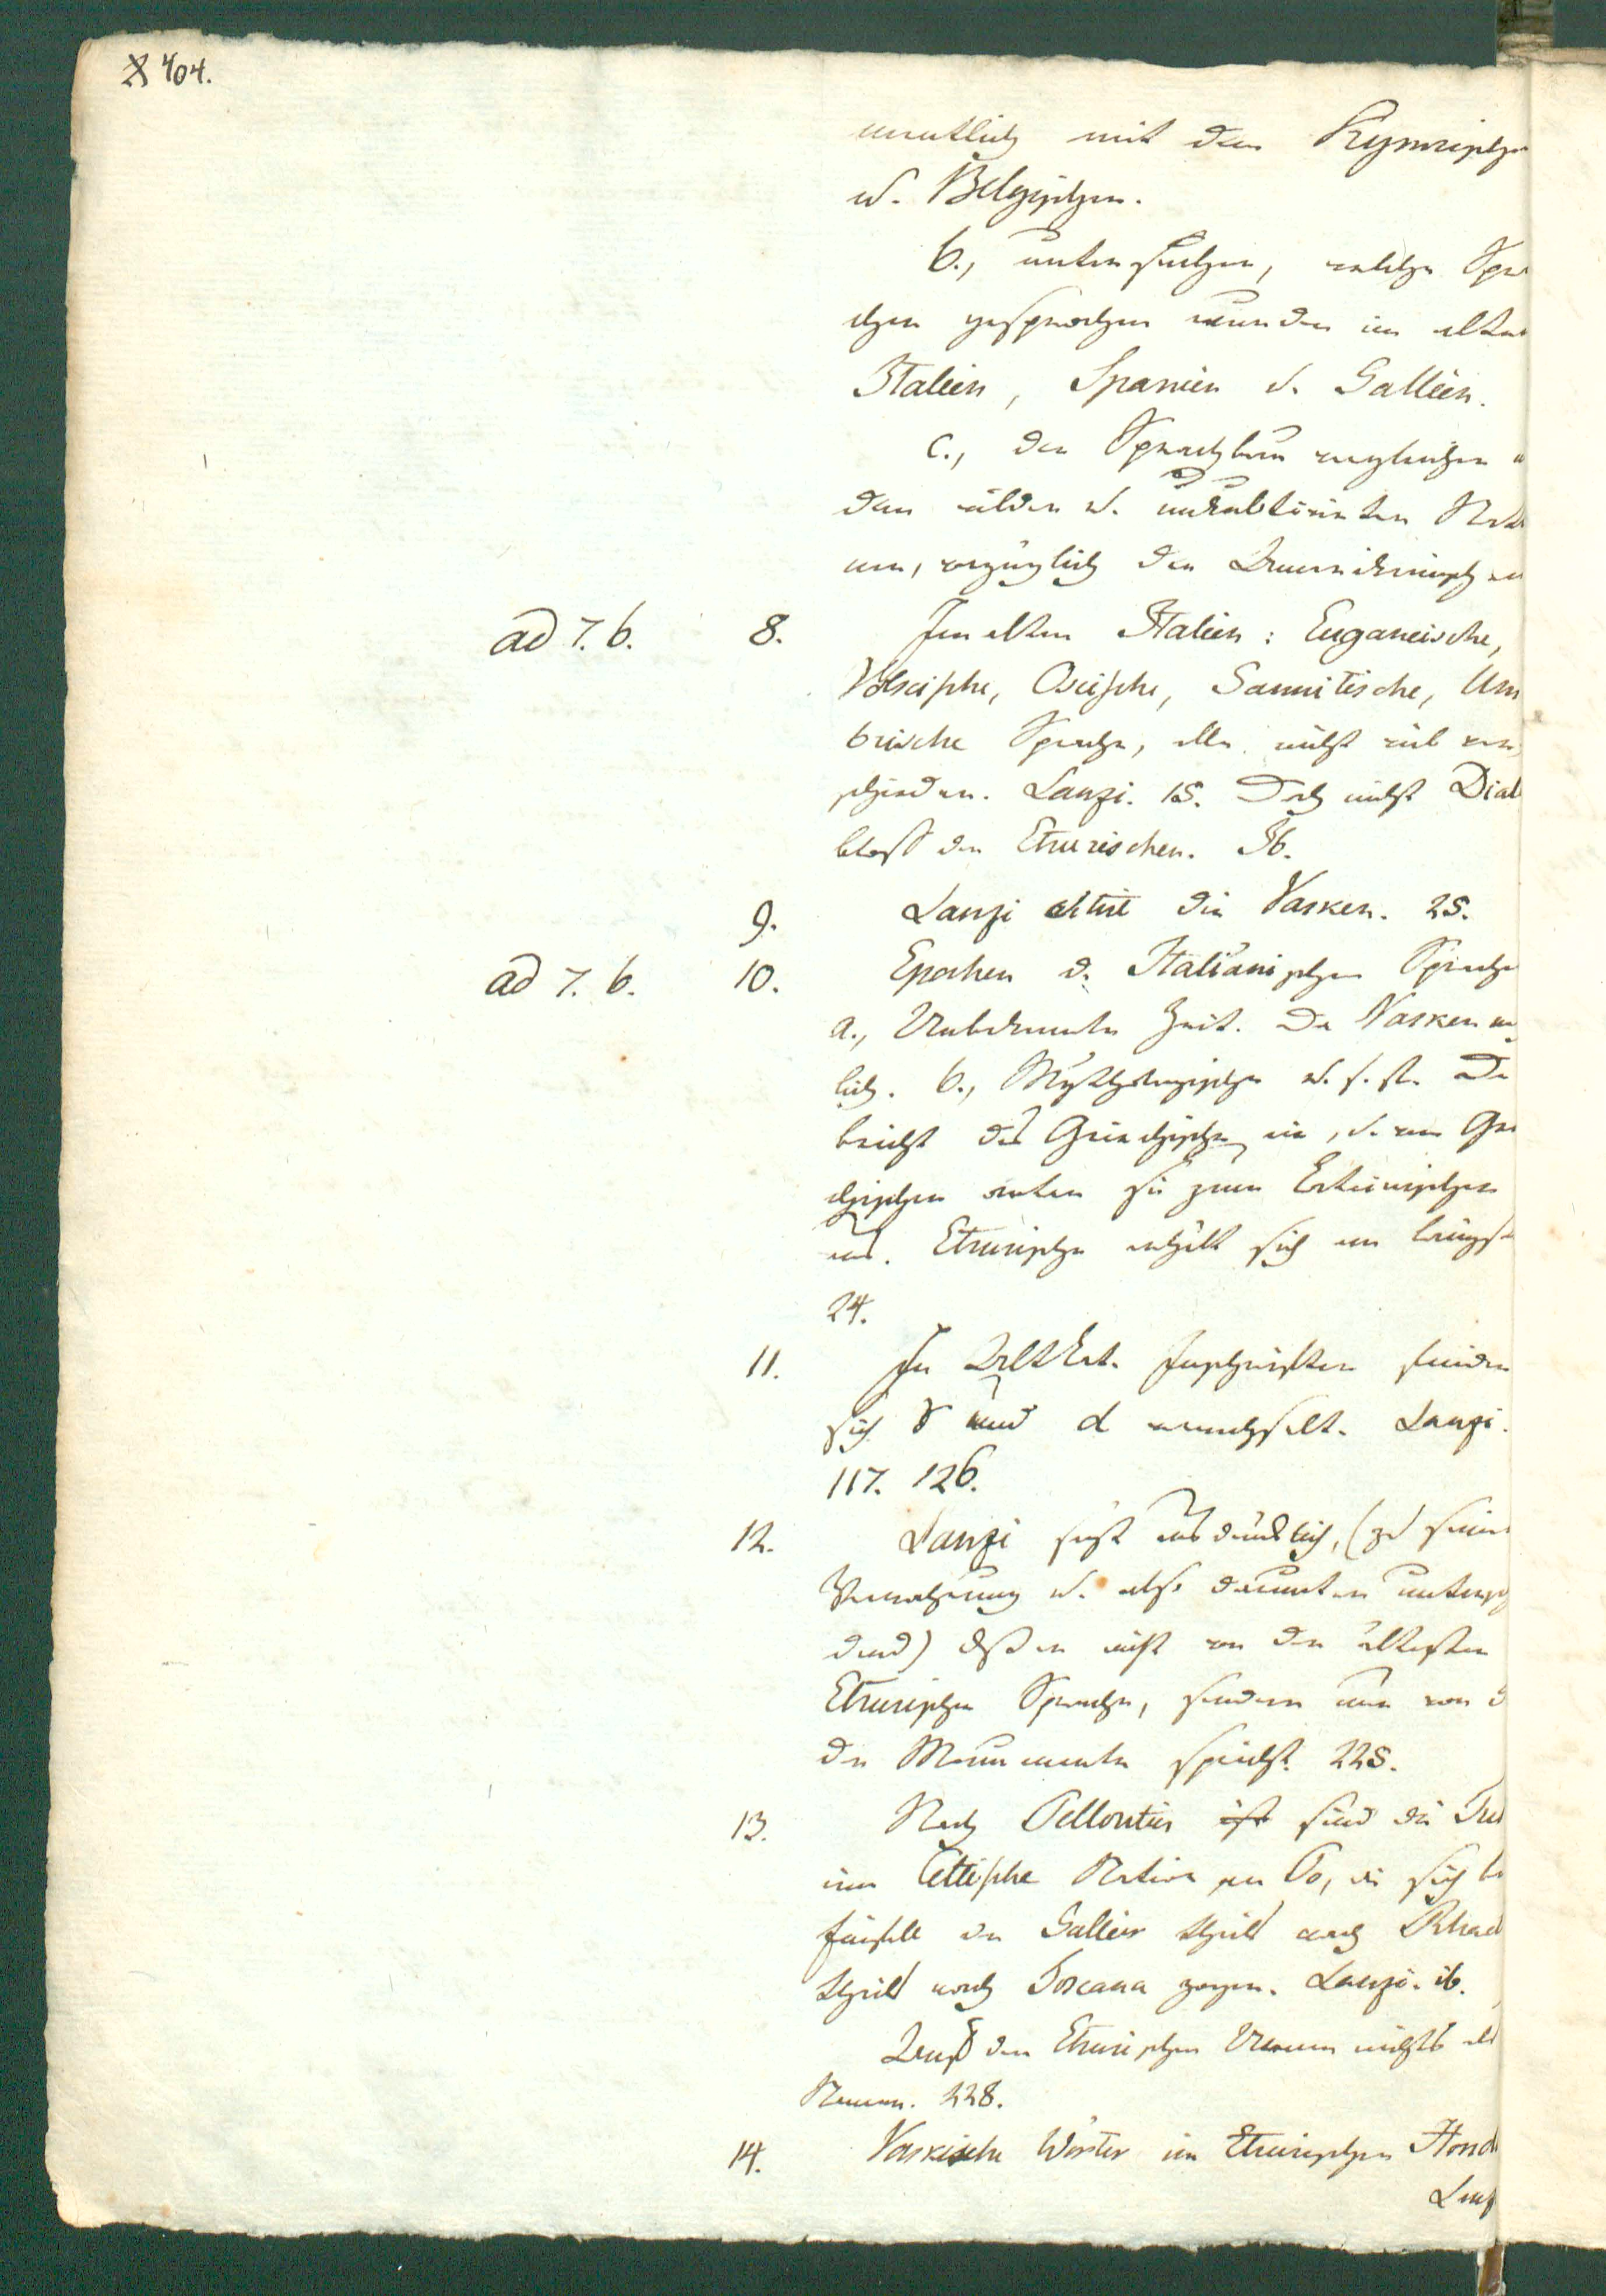 404.
mentlich mit dem Kymrischen
u. Belgischen.
b., untersuchen, welche Spra
chen gesprochen wurden im alten
Italien, Spanien u. Gallien.
c., den Sprachbau vergleichen
den wilden u. unkultivirten Nati
nen, vorzüglich den Amerikanischen
ad 7. b. 8. Im alten Italien: Euganeische,
Volscische, Oscische, Samnitische, Um
brische Sprache, alle nicht viel ver
schieden. Lanzi. 15. Doch nicht Dial
bloß der Etrurischen. Ib.
9. Lanzi citirt die Vasken. 25.
ad 7. b. 10. Epochen d. Italiänischen Sprache
a., Unbekannte Zeit. Da Vasken
lich. b., Mythologische u. s. f. Da
bricht das Griechische ein, u. vom Grie
chischen arten sie zum Lateinischen
aus. Etrurische erhält sich am längst
24.
11. In AltLat. Inschriften finden
sich r und d verwechselt. Lanzi.
117. 126.
12. Lanzi sagt ausdrücklich, (zu seiner
Verwahrung u. also darunter
) daß er nicht von der ältesten
Etrurischen Sprache, sondern nur von d
der Monumente spricht. 225.
13. Nach Pelloutier ist sind die Tus
eine Celtische Nation am Po, die sich
 der Gallier theils nach Rhae
theils nach Toscana zogen. Lanzi. ib.
 den Etrurischen Urnen nichts als
Namen. 228.
14. Vaskische Wörter im Etrurischen